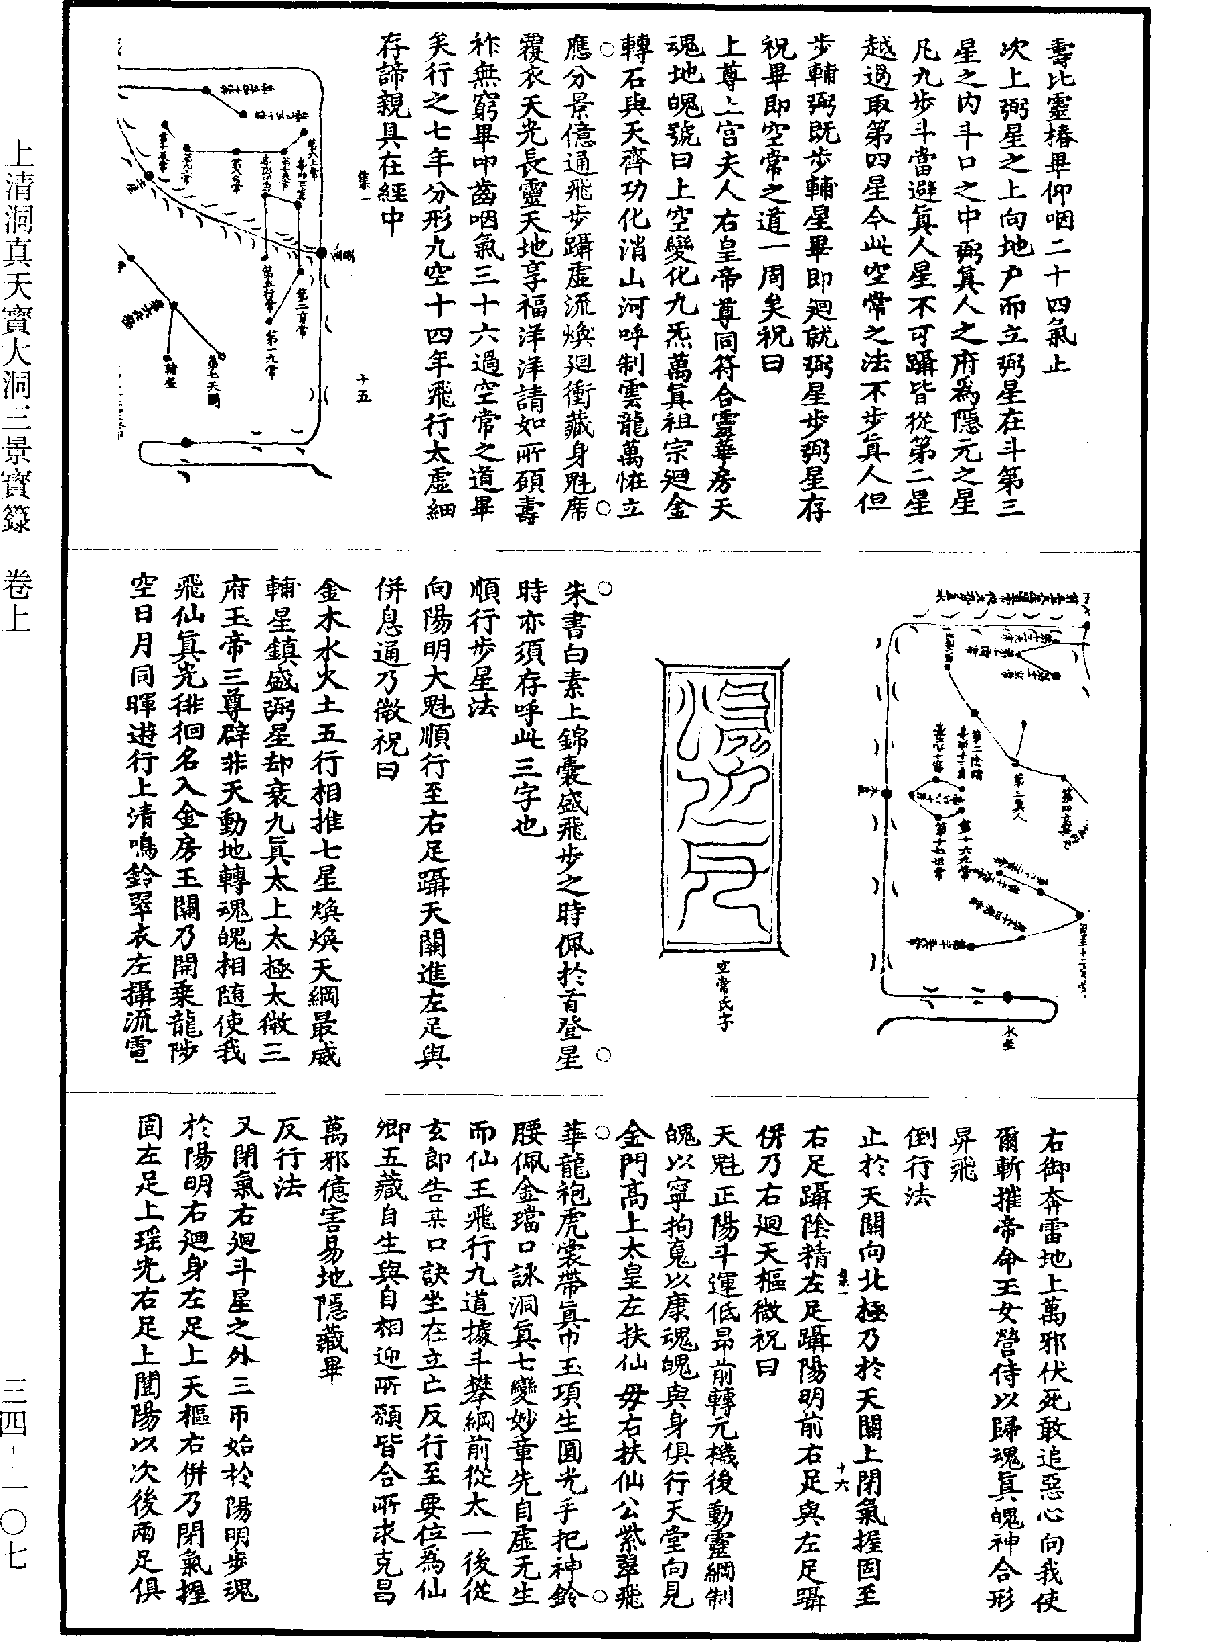 壽比靈椿畢仰咽二十四氣止
次上弼星之上向地戶而立弼星在斗第三
星之内斗口之中弼真人之府為隱元之星
凡九步斗當避真人星不可躡皆從第二星
越過取第四星今此空常之法不步真人但
步輔弼既步輔星畢即迴就弼星步弼星存
祝畢即空常之道一周矣祝曰
上尊上宫夫人右皇帝尊同符合靈華房天
魂地魄號曰上空變化九炁萬真祖宗迴金
轉石與天齊功化消山河呼制雲龍萬恠立
應分景億通飛步躡虚流煥迴衝藏身魁席
覆衣天光長靈天地享福洋洋請如所願壽
祚無窮畢叩齒咽氣三十六過空常之道畢
矣行之七年分形九空十四年飛行太虚細
存諦視具在經中
集一
十五
第一九常
第七天關
輔星
水星
第二真人
空常氏字
朱書白素上錦囊盛飛步之時佩於首登星
時亦須存呼此三字也
順行步星法
向陽明大魁順行至右足躡天關進左足與
併息通乃微祝曰
金木水火土五行相推七星煥煥天綱最威
輔星鎮盛弼星却衰九真太上太極太微三
府玉帝三尊辟非天動地轉魂魄相隨使我
飛仙真光徘徊名入金房玉關乃開乘龍陟
空日月同暉遊行上清鳴鈴翠衣左攝流電
右御奔雷地上萬邪伏死敢追惡心向我使
爾斬摧帝命玉女營侍以歸魂真魄神合形
昇飛
倒行法
止於天關向北極乃於天關上閉氣握固至
右足躡陰精左足躡陽明前右足與左足躡
集一
十六
併乃右迴天樞微祝曰
天魁正陽斗運低昂前轉元機後動靈綱制
魄以寧拘䰟以康魂魄與身俱行天堂向見
金門高上太皇左扶仙母右扶仙公紫翠飛
華龍袍虎裳帶真巾玉項生圓光手把神鈴
腰佩金璫口詠洞真七變妙章先自虚无生
而仙王飛行九道據斗攀綱前從太一後從
玄郎告某口訣坐在立亡反行至要位為仙
卿五藏自生與自相迎所願皆合所求克昌
萬邪億害易地隱藏畢
反行法
又閉氣右迴斗星之外三帀始於陽明步魂
於陽明右迴身左足上天樞右併乃閉氣握
固左足上瑶光右足上闓陽以次後兩足俱
上清洞真天寶大洞三景寶籙　卷上
三四-一〇七